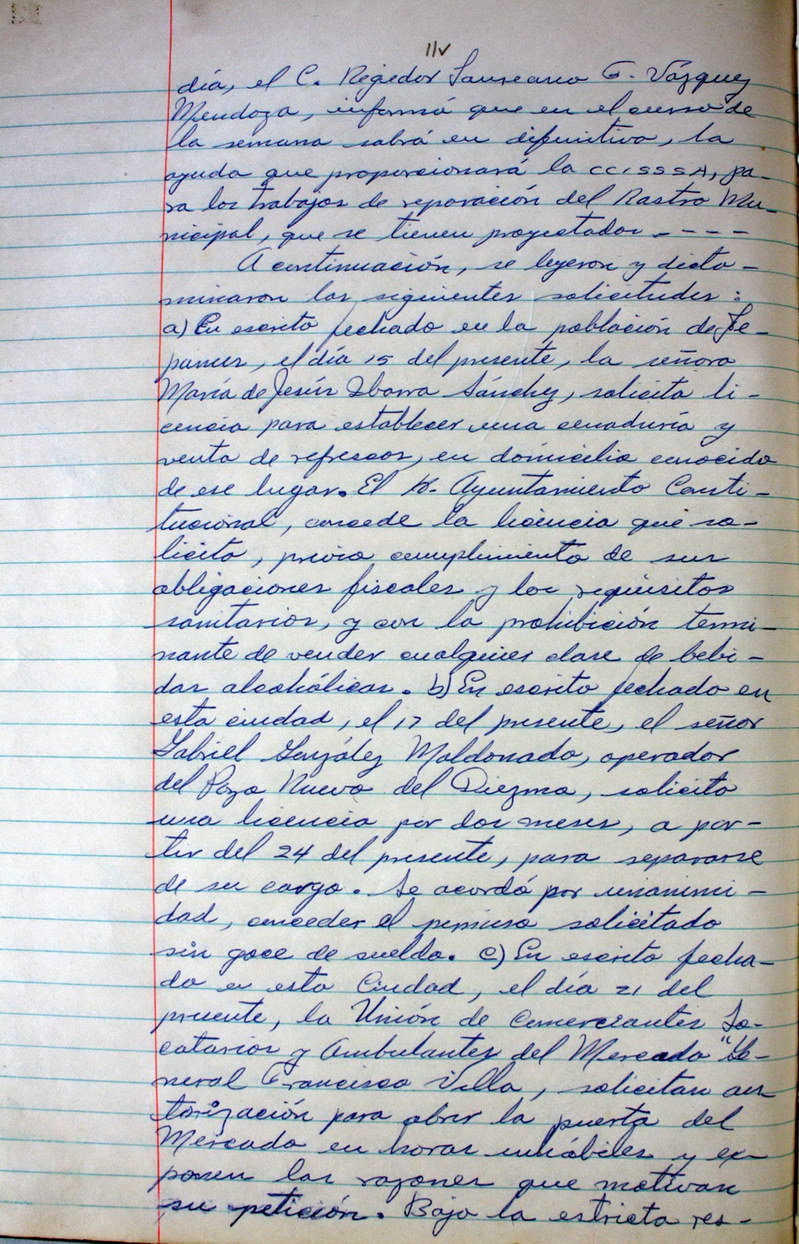 11v
día, el C. Regidor Laureano G. Vázquez
Mendoza, informó que en el curso de
la semana sabrá en difinitiva, la
ayuda que proporcionará la CCISSSA, pa-
ra los trabajos de reparación del Rastro Mu-
nicipal, que se tienen proyectados - - - -
A continuación, se leyeron y dicta-
minaron las siguientes solicitudes :
a) En escrito fechado en la población de Te-
pames, el día 15 del presente, la señora
María de Jesús Ibarra Sánchez, solicita li-
cencia para establecer una cenaduría y
venta de refrescos, en domicilio conocido
de ese lugar. El H. Ayuntamiento Consti-
tucional, concede la licencia que so-
licita, previo cumplimiento de sus
obligaciones fiscales y los requisitos
sanitarios, y con la prohibición termi-
nante de vender cualquier clase de bebi-
das alcohólicas. b) En escrito fechado en
esta ciudad, el 17 del presente, el señor
Gabriel González Maldonado, operador
del Pozo Nuevo del Diezmo, solicita
una licencia por dos meses, a par-
tir del 24 del presente, para separarse
de su cargo. Se acordó por unanimi-
dad, conceder el permiso solicitado
sin goce de sueldo. c) En escrito fecha-
do en esta Ciudad, el día 21 del
presente, la Unión de Comerciantes Lo-
catarios y Ambulantes del Mercado "Ge-
neral Francisco Villa, solicitan au
torización para abrir la puerta del
Mercado en horas inhábiles y ex-
ponen las razones que motivan
su petición. Bajo la estricta res-